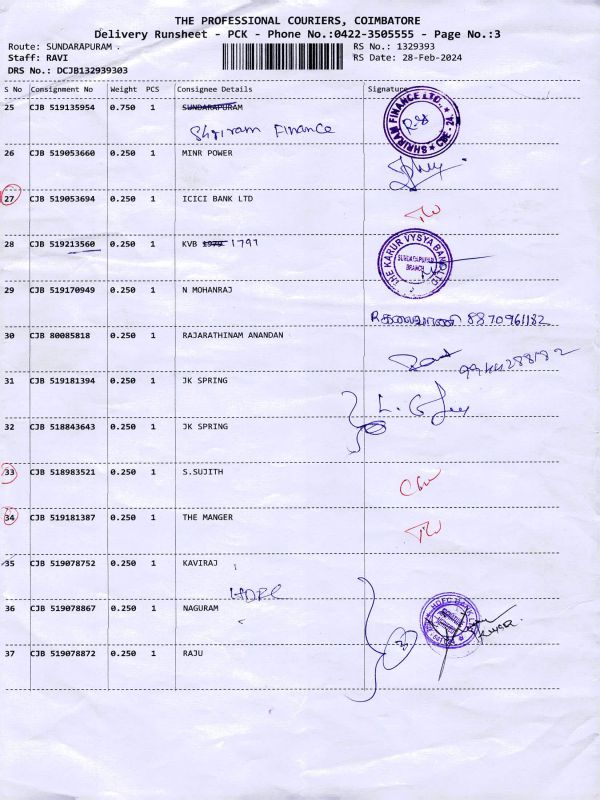 THE PROFESSIONAL COURIERS, COIMBATORE
Delivery Runsheet - PCK - Phone No.:0422-3505555 - Page No.:3
Route: SUNDARAPURAM . RS No.: 1329393
Staff: RAVI RS Date: 28-Feb-2024
DRS No.: DCJB132939303
S No Consignment No Weight PCS Consignee Details Signature
25 CJB 519135954 0.750 1 SUNDARAPURAM
Shriram Finance
SHRIRAM FINANCE LTD., CBE - 24
26 CJB 519053660 0.250 1 MINR POWER
27 CJB 519053694 0.250 1 ICICI BANK LTD
28 CJB 519213560 0.250 1 KVB 1979 1797
THE KARUR VYSYA BANK LTD
SUNDARAPURAM
BRANCH
29 CJB 519170949 0.250 1 N MOHANRAJ
8870961182
30 CJB 80085818 0.250 1 RAJARATHINAM ANANDAN
9944288182
31 CJB 519181394 0.250 1 JK SPRING
32 CJB 518843643 0.250 1 JK SPRING
33 CJB 518983521 0.250 1 S.SUJITH
34 CJB 519181387 0.250 1 THE MANGER
35 CJB 519078752 0.250 1 KAVIRAJ
HDFC
36 CJB 519078867 0.250 1 NAGURAM
HDFC BANK
37 CJB 519078872 0.250 1 RAJU
3